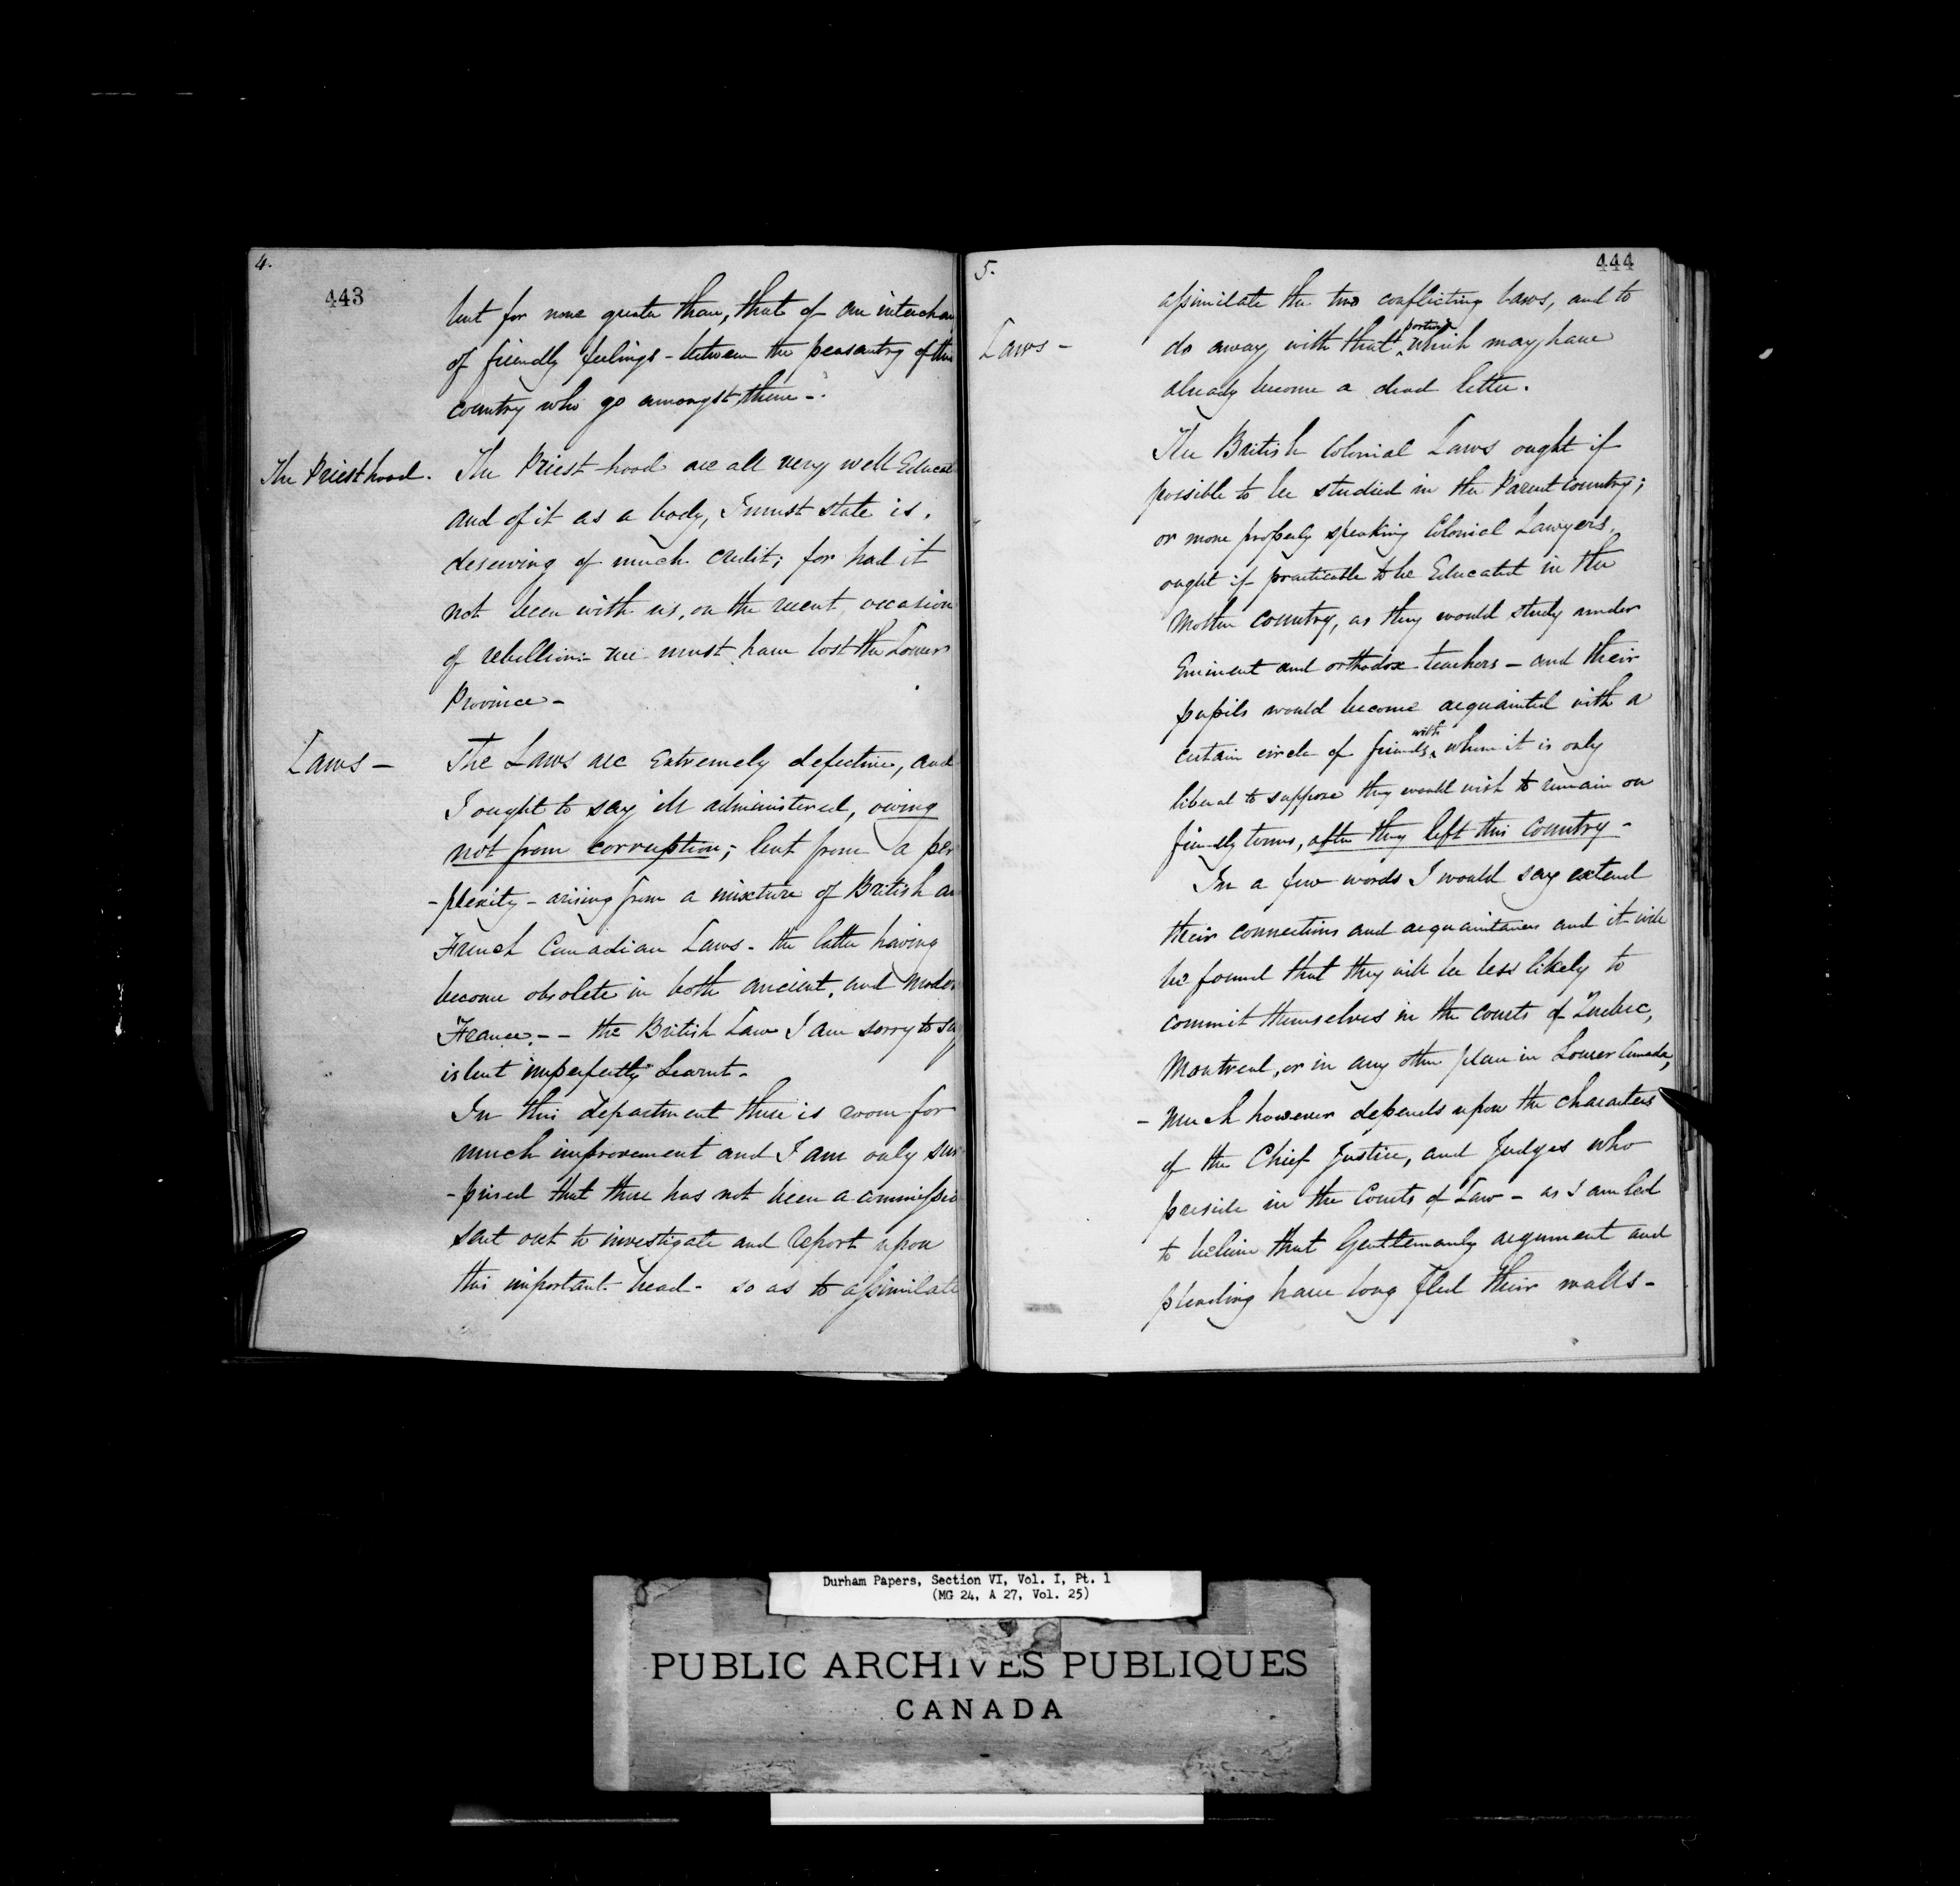 4.
443
but for none greater than, that of an interchan
of friendly feelings - between the peasantry of this
country who go amongst them -.
The Priesthood.
The Priest-hood are all very well Educat
and of it as a body, I must state is,
deserving of much credit; for had it
not been with us, on the recent occasion
of rebellion:- we must have lost the Lower
Province -
Laws -
The Laws are Extremely defective, and
I ought to say ill administered, owing
not from corruption; but from a per
-plexity - arising from a mixture of British an
French Canadian Laws - the latter having
become obsolete in both ancient, and Moder
France. - - the British Law I am sorry to say
is but imperfectly Learnt -
In this department there is room for
much improvement and I am only sur
-prised that there has not been a commission
sent out to investigate and Report upon
this important head - so as to assimilate
5.
444
assimilate the two conflicting Laws, and to
Laws -
do away with that portion which may have
already become a dead letter.
The British Colonial Laws ought if
possible to be studied in the Parent country;
or more properly speaking Colonial Lawyers,
ought if practicable to be Educated in the
Mother Country, as they would study under
Eminent and orthodox teachers - and their
pupils would become acquainted with a
certain circle of friends, with whom it is only
liberal to suppose they would wish to remain on
friendly terms, after they left this Country -
In a few words I would say extend
their connections and acquaintances and it will
be found that they will be less likely to
commit themselves in the courts of Quebec,
Montreal, or in any other place in Lower Canada,
- Much however depends upon the characters
of the Chief Justice, and Judges who
preside in the Courts of Law - as I am led
to believe that Gentlemanly argument and
pleading have long fled their walls -
Durham Papers, Section VI, Vol. I, Pt. 1
(MG 24, A 27, Vol. 25)
PUBLIC ARCHIVES PUBLIQUES
CANADA